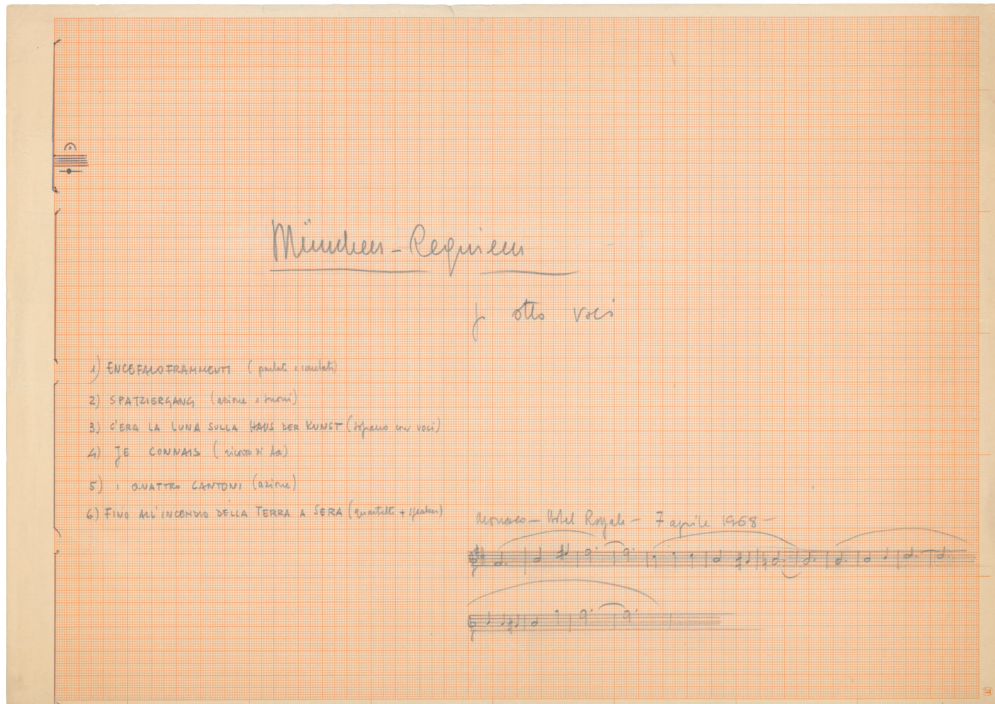 München-Requiem
x otto voci
1) ENCEFALOFRAMMENTI (parlati e cantati)
2) SPATZIERGANG (azione e suoni)
3) C'ERA LA LUNA SULLA HAUS DER KUNST (soprano con voci)
4) JE CONNAIS
5) I QUATTRO CANTONI (azione)
6) FINO ALL'INCENDIO DELLA TERRA A SERA (quartetto + speaker)
Monaco – Hôtel Royale – 7 aprile 1968 –